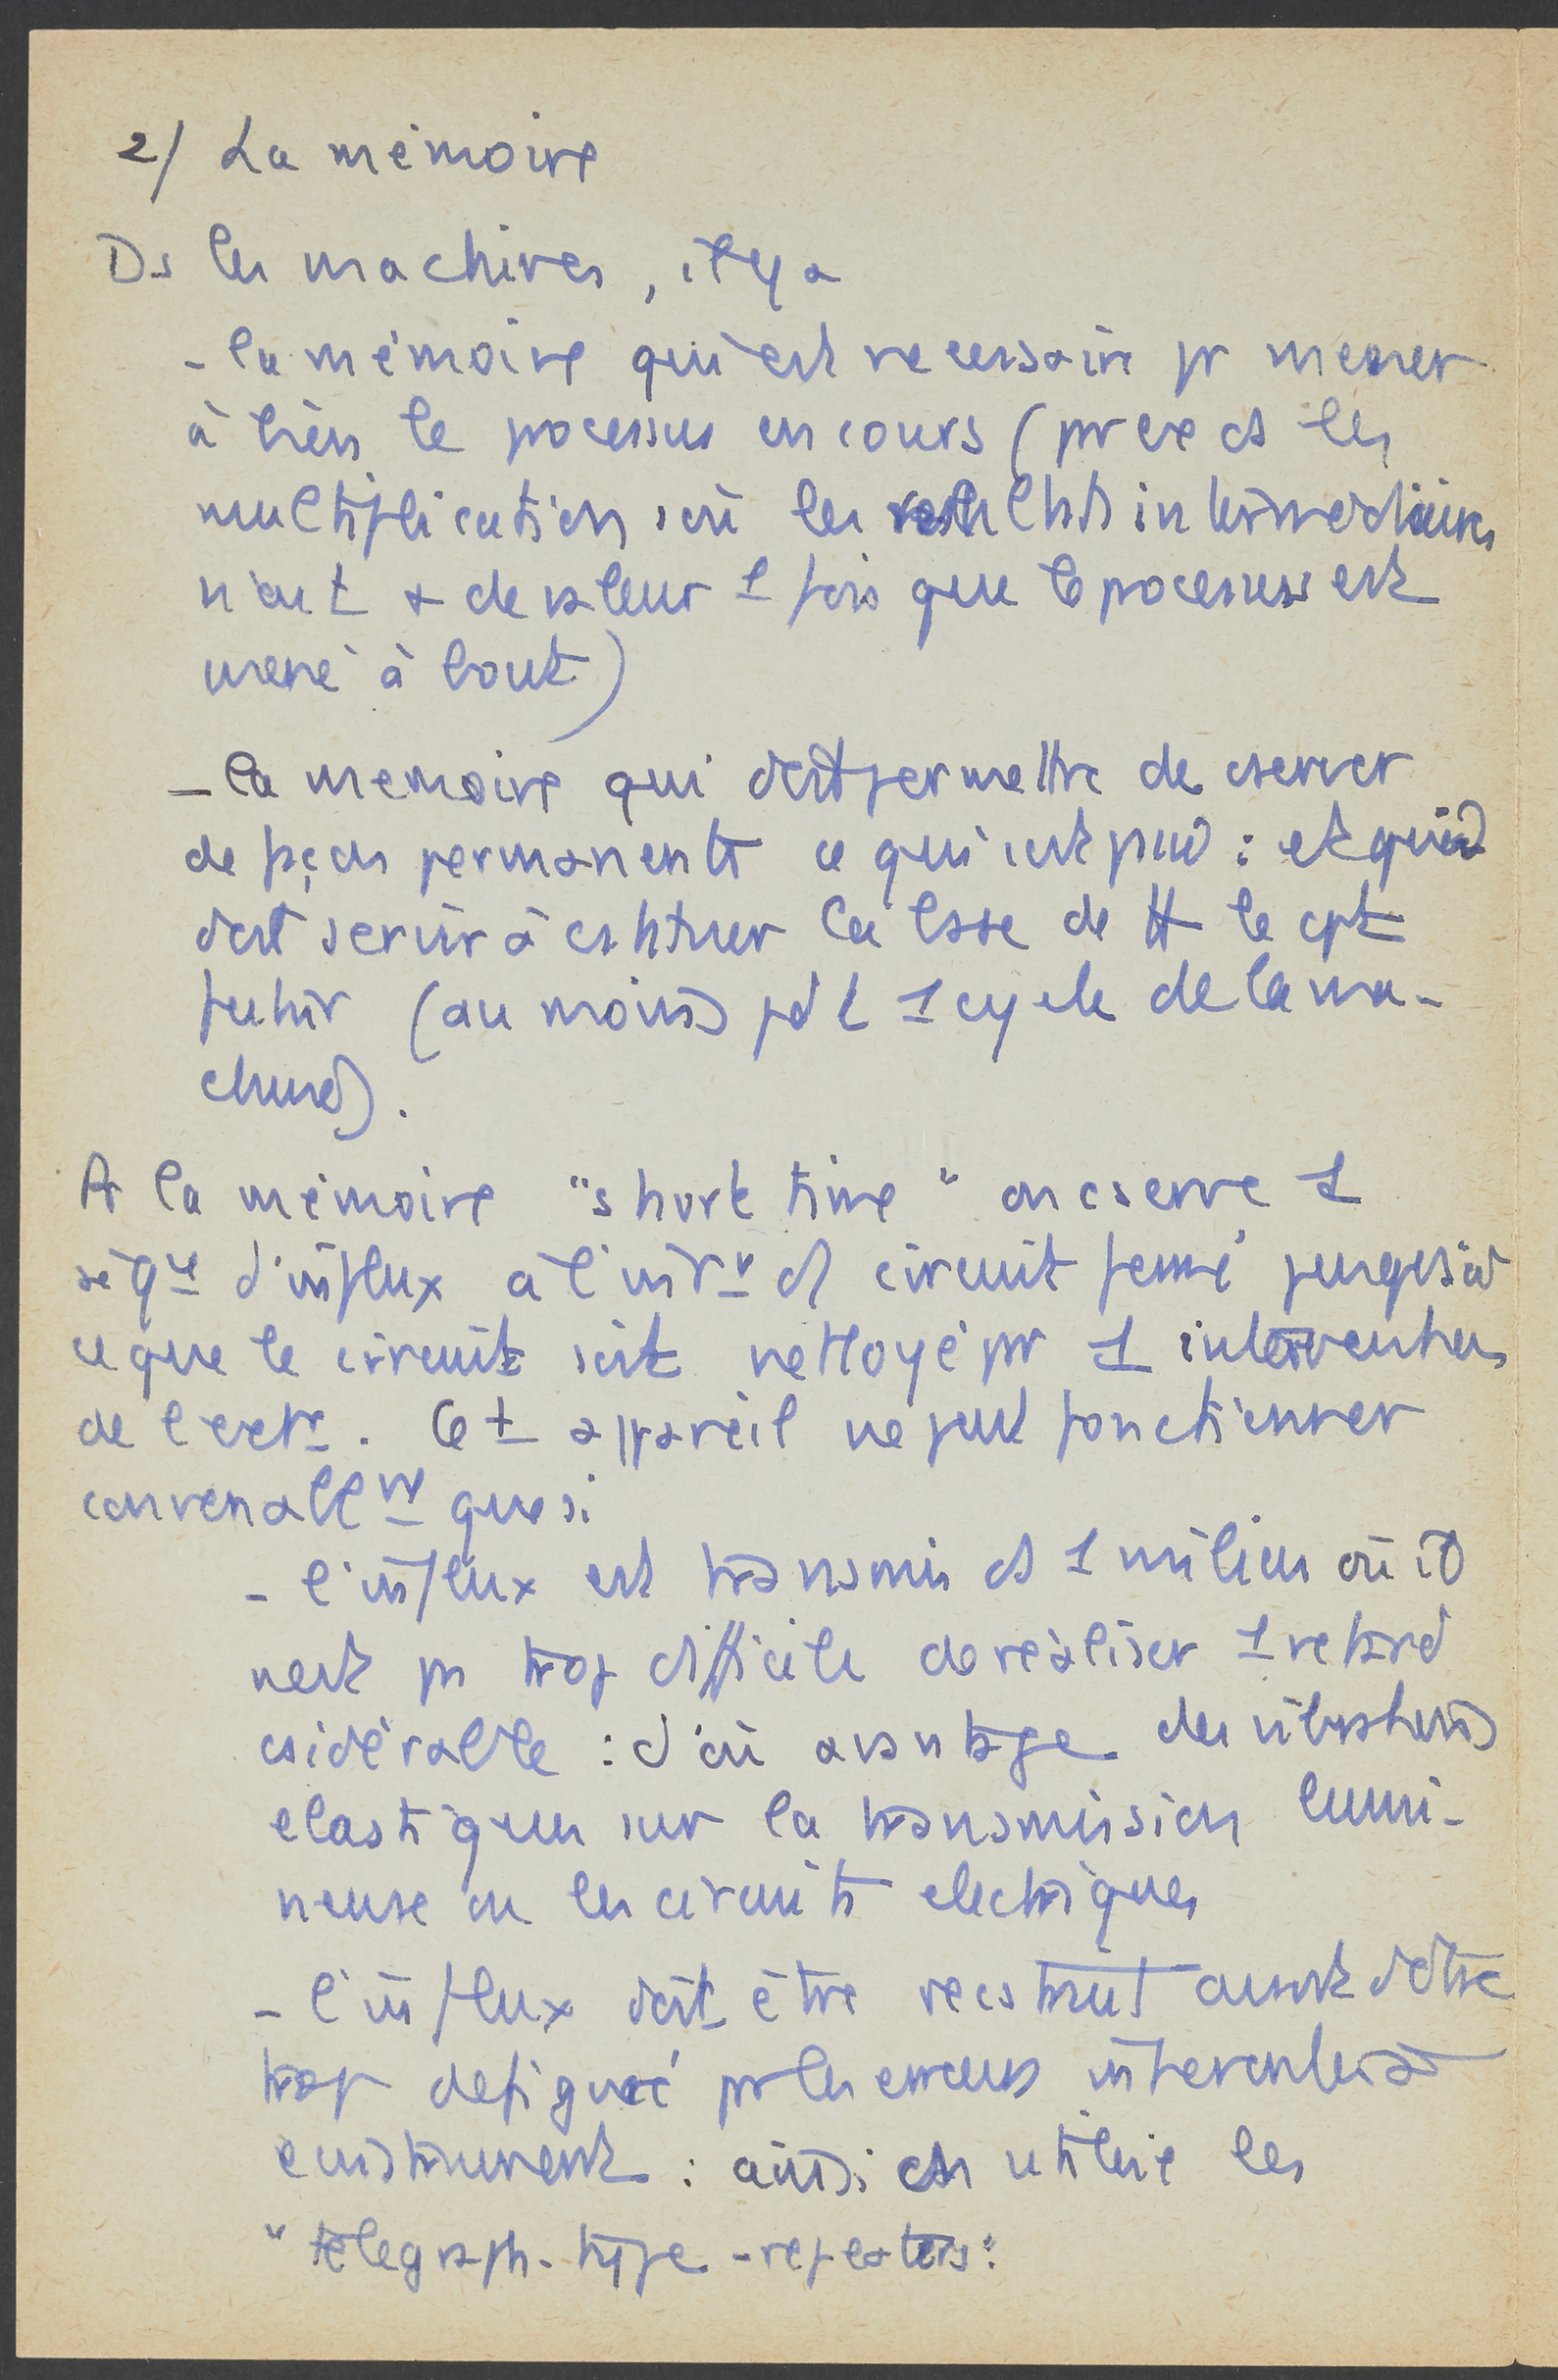 2/ La mémoire
Ds les machines, il y a
- la mémoire qui est necessaire pr mener
à bien le processus en cours (pr ex ds les
multiplications où les resultats intermediaires
n'ont + de valeur 1 fois que le processus est
mené à bout)
- la memoire qui doit permettre de cserver
de façon permanente ce qui est : et qui
doit servir à cstituer la base de tt le cpt
futur (au moins pdt 1 cycle de la ma-
chine).
A la mémoire "short time" on cserve 1
séqce d'influx à l'intr d circuit fermé jusqu'à
ce que le circuit soit nettoyé pr 1 intervention
de l'extr. Cet appareil ne peut fonctionner
convenablemt que si
- l'influx est transmis ds 1 milieu où il
n'est pas trop difficile de réaliser 1 retard
csidérable : d'où avantage des vibrations
elastiques sur la transmission lumi-
neuse ou les circuits electriques
- l'influx doit être recstruit avant d'être
trop defiguré pr les erreurs
: ainsi on utilise les
"telegraph-type-repeaters".